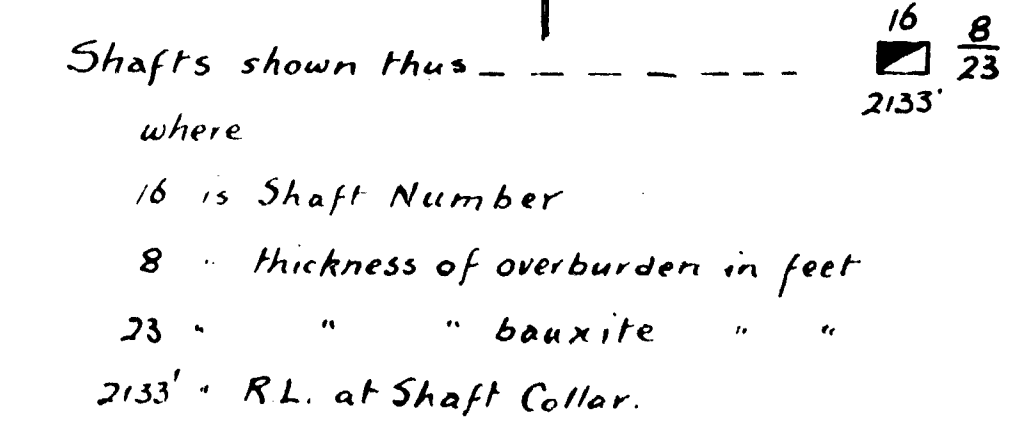 Shafts shown thus _ _ _ _ _ _ _ 16 8/23
2133'
where
16 is Shaft Number
8 " thickness of overburden in feet
23 " " " bauxite " "
2133' " R.L. at Shaft Collar.